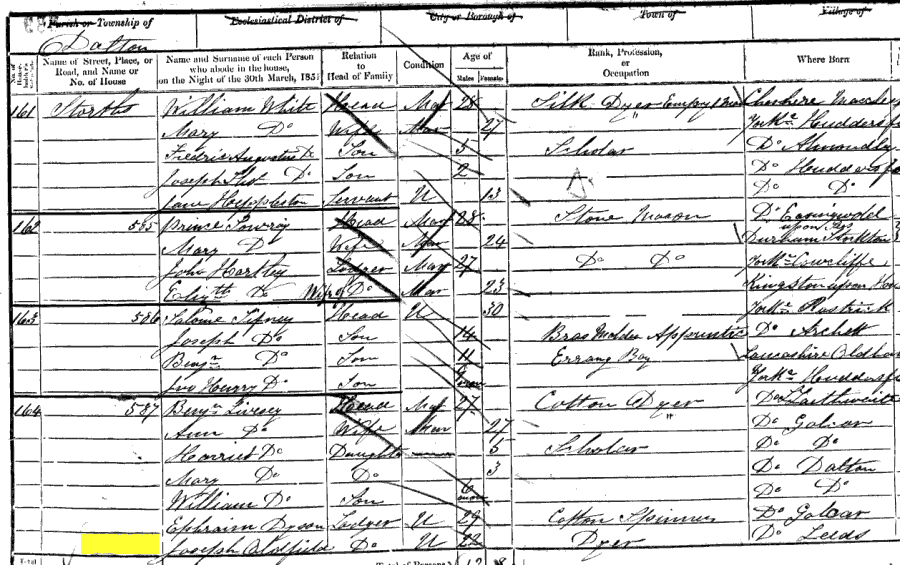 Parish or Township of Ecclesiastical District of City or Borough of Town of Village of
Dalton
Name of Street, Place, or Road, and Name or No. of House
Name and Surname of each Person who abode in the house, on the Night of the 30th March, 1851
Relation to Head of Family
Condition
Age of
Males Females
Rank, Profession, or Occupation
Where Born
161 Storths William White Head Mar 28 Silk Dyer Cheshire
Mary Do Wife Mar 27 Yorks. Hudders
Fredric Augustine Do Son 5 Scholar Do Almondby
Joseph Do Son 2 Do Hudders
Jane Heppleston Servant U 13 Do Do
162 585 Prince Head Mar 28 Stone Mason Do
Mary Do Wife Mar 24 Durham Stockton upon Tees
John Hartley Lodger Mar 27 Do Do Yorks. Cowcliffe
Elizth Do Wife of Do Mar 23 Kingston upon Hu
163 586 Salome Head U 30 Yorks. Rastrick
Joseph Do Son 14 Bras Molder Do
Benjn Do Son 11 Errand Boy Lancashire Oldham
Jno Henry Do Son Yorks. Hudders
164 587 Benjn Livesey Head Mar 27 Cotton Dyer Do
Ann Do Wife Mar 27 Do Golcar
Harriet Do Daughter 5 Scholar Do Do
Mary Do Do 3 Do Dalton
William Do Son 6 mon Do Do
Ephraim Dyson Lodger U 29 Cotton Spinner Do Golcar
Joseph Oldfield Do U 22 Dyer Do Leeds
Total